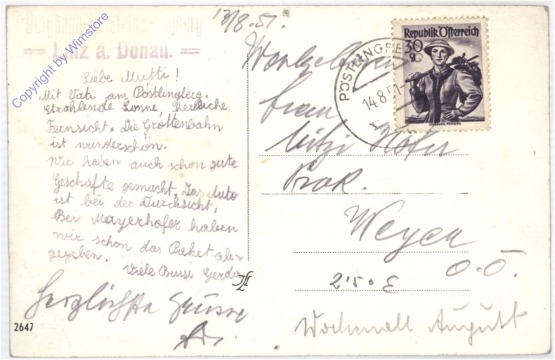 13/8.51.
== Linz a. Donau. ==
Copyright by Wimstore
Liebe Mutti!
Mit Vati am Pöstlingberg.
Strahlende Sonne herrliche
Fernsicht. Die Grottenbahn
ist wunderschön.
Wir haben auch schon gute
Geschäfte gemacht. Das Auto
ist bei der Durchsicht.
Bei Mayerhofer haben
wir schon das Paket ab-
gegeben.
Viele Bussi Gerda
Herzlichste Grüsse
2647
Republik Österreich
30
g
PÖSTLINGBERG
14.8.51
Frau
Mitzi Hofer
Prok.
Weyer
O.Ö.
Wochenalt August